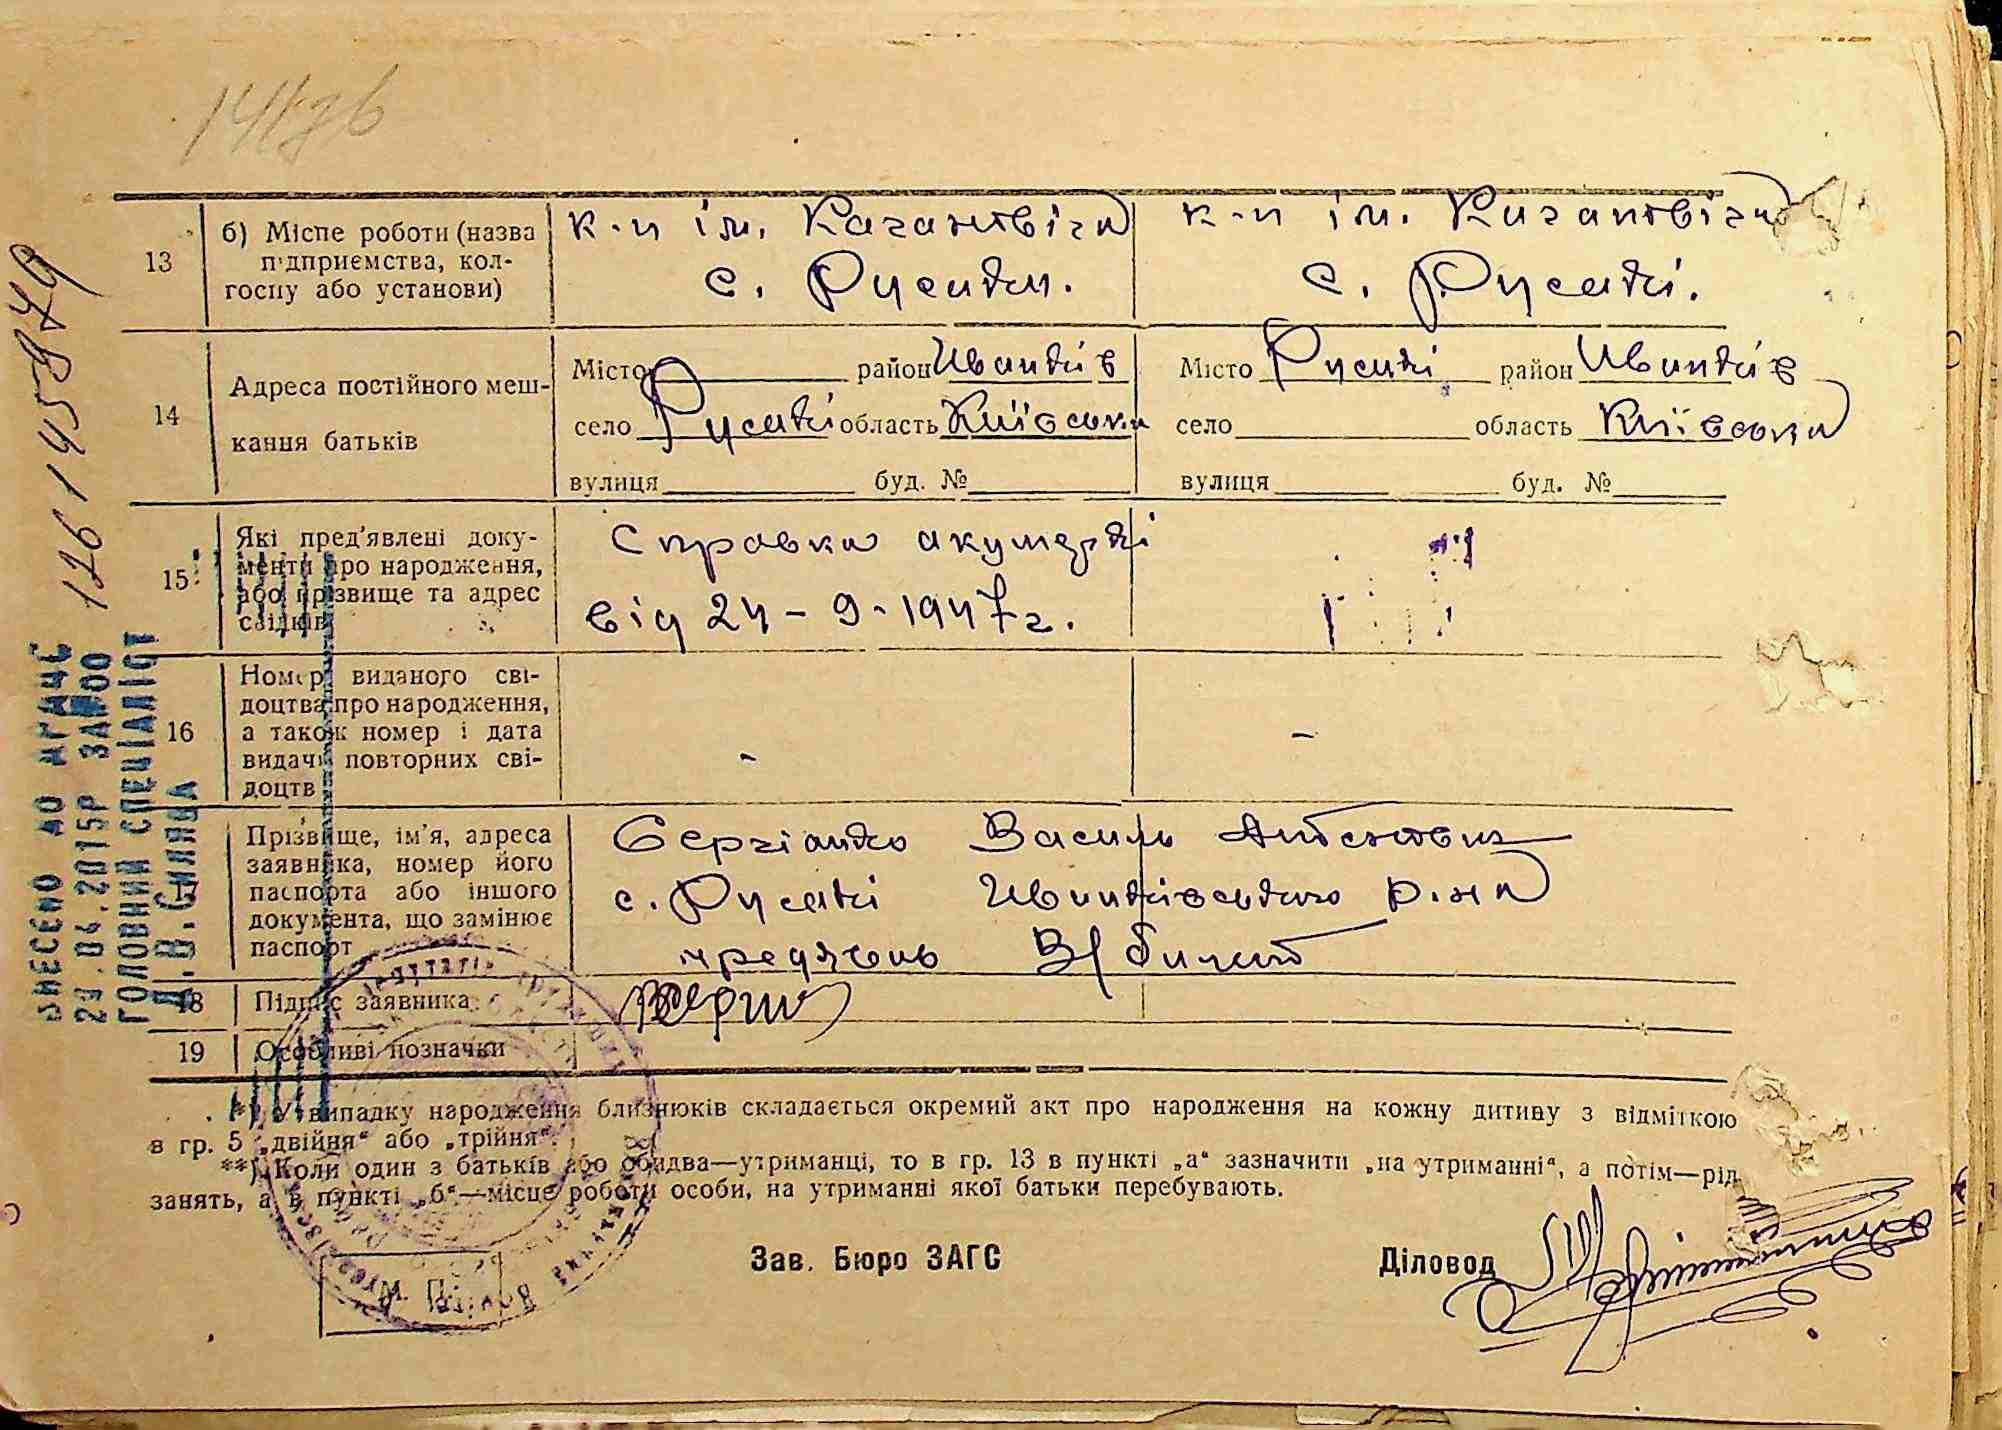 13 б) Місце роботи (назва підприємства, колгоспу або установи)
к-п ім. Кагановіча
с. Русаки.
к-п ім. Кагановіча
с. Русакі.
14 Адреса постійного мешкання батьків
Місто район Иванків
село Русакі область Київська
вулиця буд. №
Місто Русакі район Иванків
село область Київська
вулиця буд. №
15 Які пред'явлені документи про народження, або прізвище та адрес свідків
Справка акушеркі
від 24-9-1947 г.
16 Номер виданого свідоцтва про народження, а також номер і дата видачі повторних свідоцтв
-
-
17 Прізвище, ім'я, адреса заявника, номер його паспорта або іншого документа, що замінює паспорт
Василь
с. Русакі Иванківського р-на
В/билет
18 Підпис заявника
19 Особливі позначки
*) У випадку народження близнюків складається окремий акт про народження на кожну дитину з відміткою
в гр. 5 „двійня“ або „трійня“.
**) Коли один з батьків або обидва—утриманці, то в гр. 13 в пункті „а“ зазначити „на утриманні“, а потім—рід
занять, а в пункті „б“—місце роботи особи, на утриманні якої батьки перебувають.
М. П.
Зав. Бюро ЗАГС
Діловод
ВНЕСЕНО ДО ДРАЦС
23.04.2015Р ЗА№00
126145879
ГОЛОВНИЙ СПЕЦІАЛІСТ